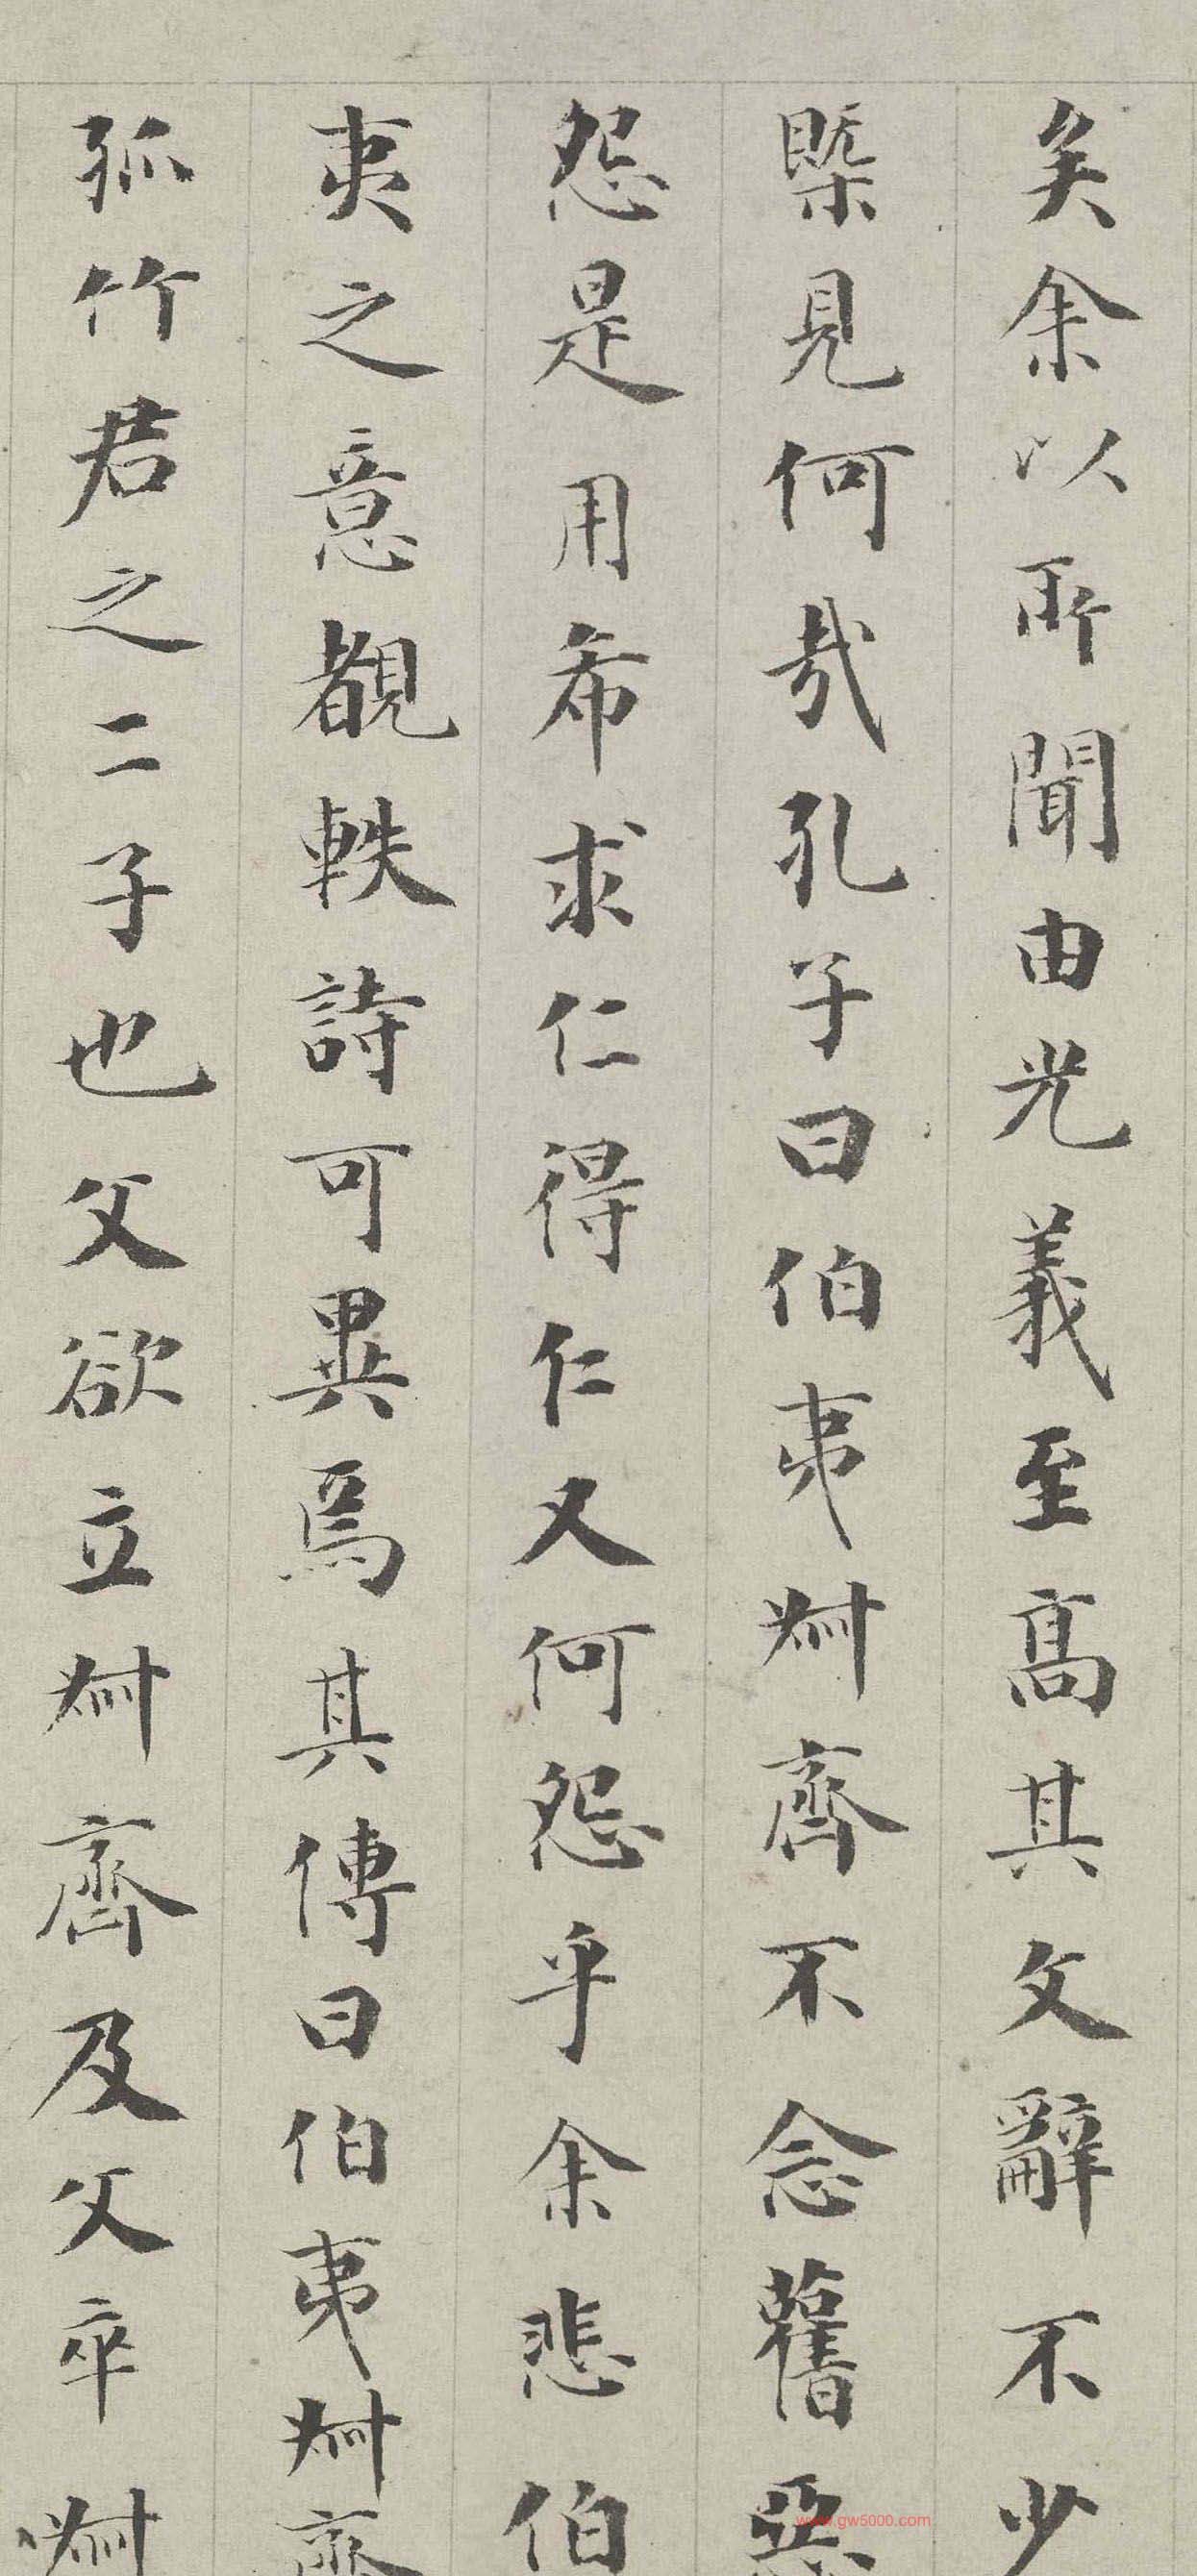 矣余以所聞由光義至高其文辭不少
槩見何哉孔子曰伯夷叔齊不念舊惡
怨是用希求仁得仁又何怨乎余悲伯
夷之意覩軼詩可異焉其傳曰伯夷叔齊
孤竹君之二子也父欲立叔齊及父卒叔
www.gw5000.com